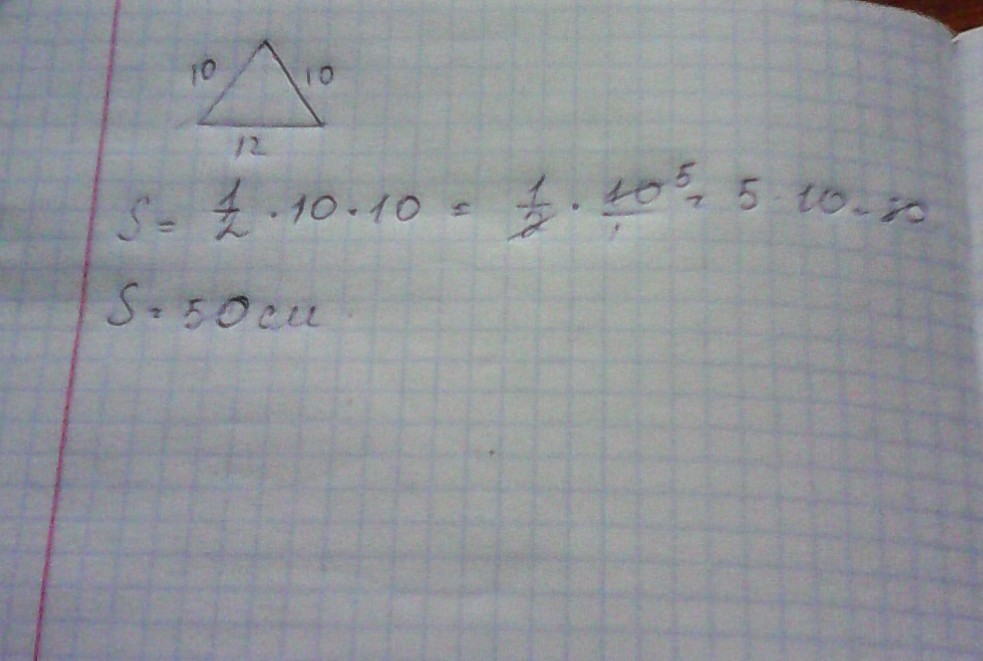 10 10
12
S = 1/2 · 10 · 10 = 1/2 · 10⁵/1 = 5 · 10 = 50
S = 50 см